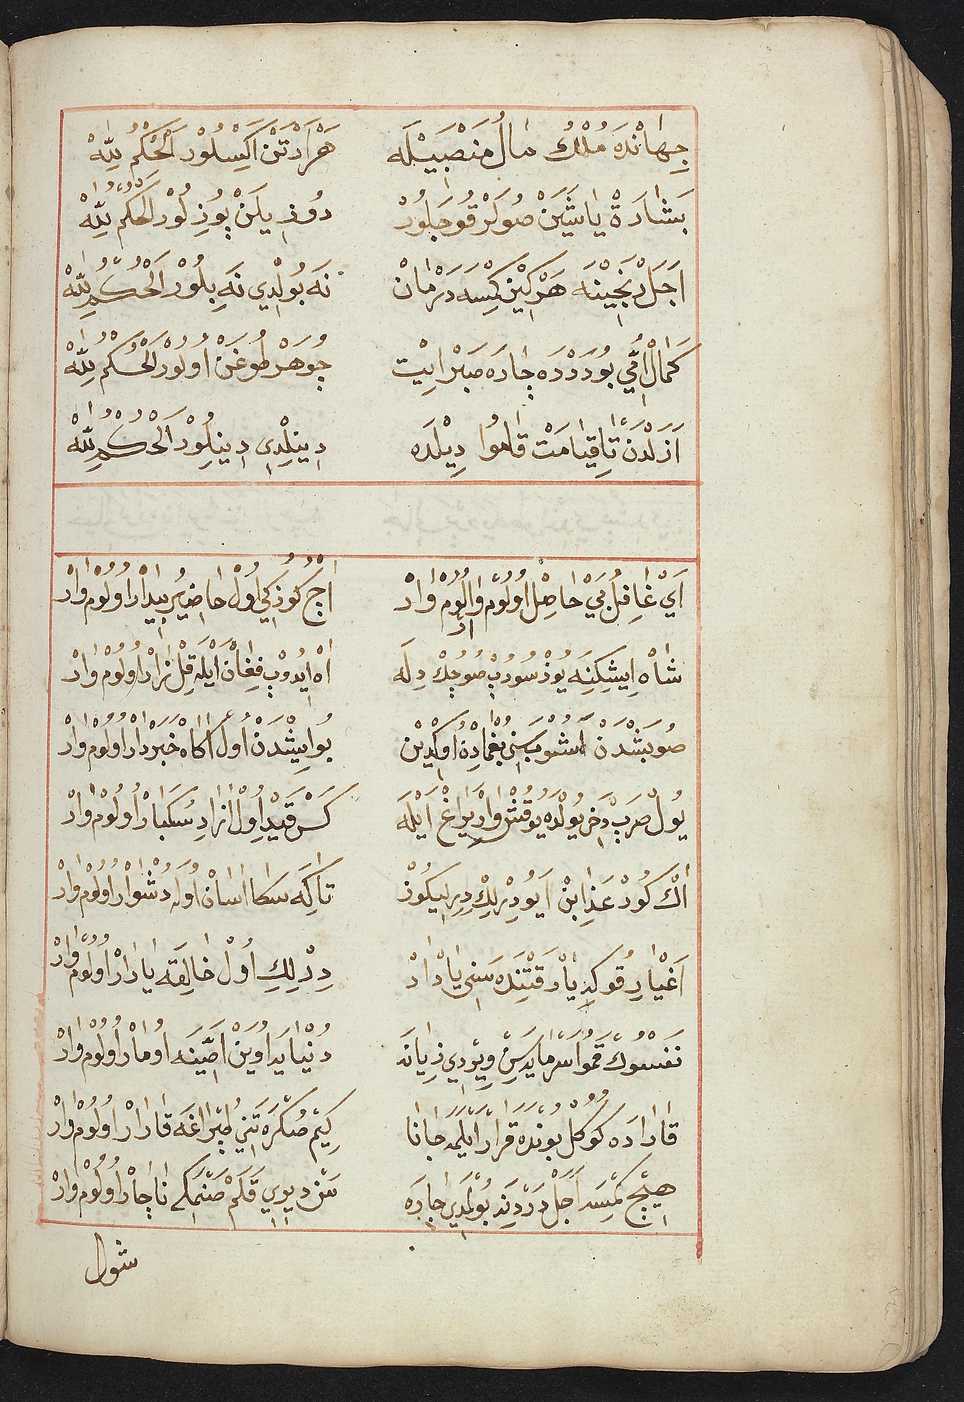 جهانده ملك مال منصبيله هر ارتن اكسلور الحكم لله
بشاره ياشين صولر قوجلور دون يلن بوزلور الحكم لله
اجل رنجينه هركيز كيسه درمان نه بولدي نه بلور الحكم لله
كمال امي بو درده چاره صبر ايت چو هر طوغن اولور الحكم لله
ازلدن تا قيامت قامو ديلده دينلدي دينلور الحكم لله
اي غافل في حاصل اولوم وار اولوم وار اچ كوزكي اول حاضر بيدار اولوم وار
شاه ايشكنه يوز سوروب صوچك دله اه ايدوب فغان ايله قل زار اولوم وار
صو بشدن اشوب سني بغمادن اوكدين بو ايشدن اول اكاه خبردار اولوم وار
يول صرب دخي يولده يوقش وار يراغ ايله كس قيد اول ازاد سكبار اولوم وار
اك كور عذابن ايو ديرلك ديرليكوز تاكه سكا اسان اوله دشوار اولوم وار
اغياري قو كه يار قتنده سني يا داد ديرلك اول خالقه يارار اولوم وار
نفسوك قمو سرمايه سن ويردي زيانه دنيايه اوين اصينه اومار اولوم وار
قاراده كوكل بونده قرار ايلمه جانا كيم صكره تني طپراغه قارار اولوم وار
هيچ كمسه اجل دردينه بولمدي چاره سن ديوي قلم صنمكه ناچار اولوم وار
شول